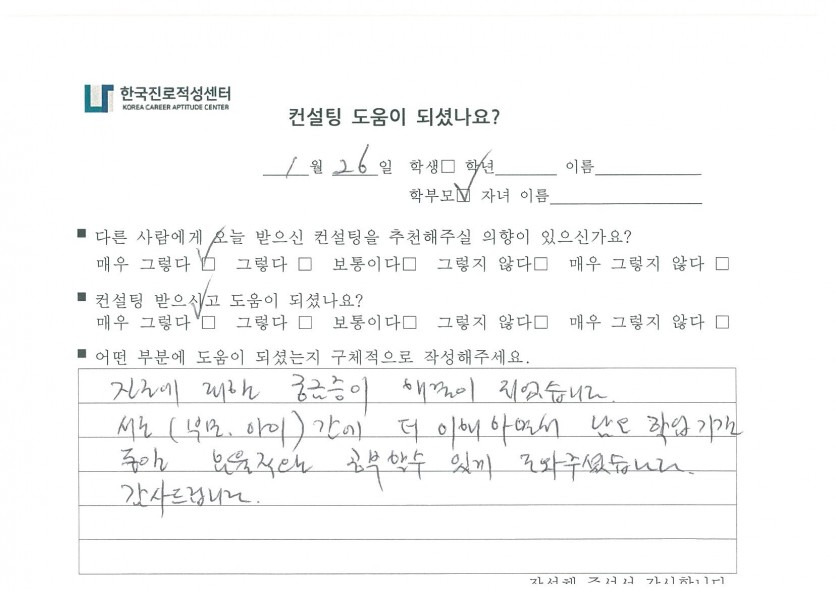 한국진로적성센터
KOREA CAREER APTITUDE CENTER
컨설팅 도움이 되셨나요?
1월 26일 학생□ 학년 이름
학부모☑ 자녀 이름
■ 다른 사람에게 오늘 받으신 컨설팅을 추천해주실 의향이 있으신가요?
매우 그렇다 ☑ 그렇다 □ 보통이다□ 그렇지 않다□ 매우 그렇지 않다 □
■ 컨설팅 받으시고 도움이 되셨나요?
매우 그렇다 ☑ 그렇다 □ 보통이다□ 그렇지 않다□ 매우 그렇지 않다 □
■ 어떤 부분에 도움이 되셨는지 구체적으로 작성해주세요.
진로에 대한 궁금증이 해결이 되었습니다.
서로 (부모, 아이) 간에 더 이해하면서 남은 학업기간
동안 효율적인 공부할수 있게 도와주셨습니다.
감사드립니다.
작성해 주셔서 감사합니다